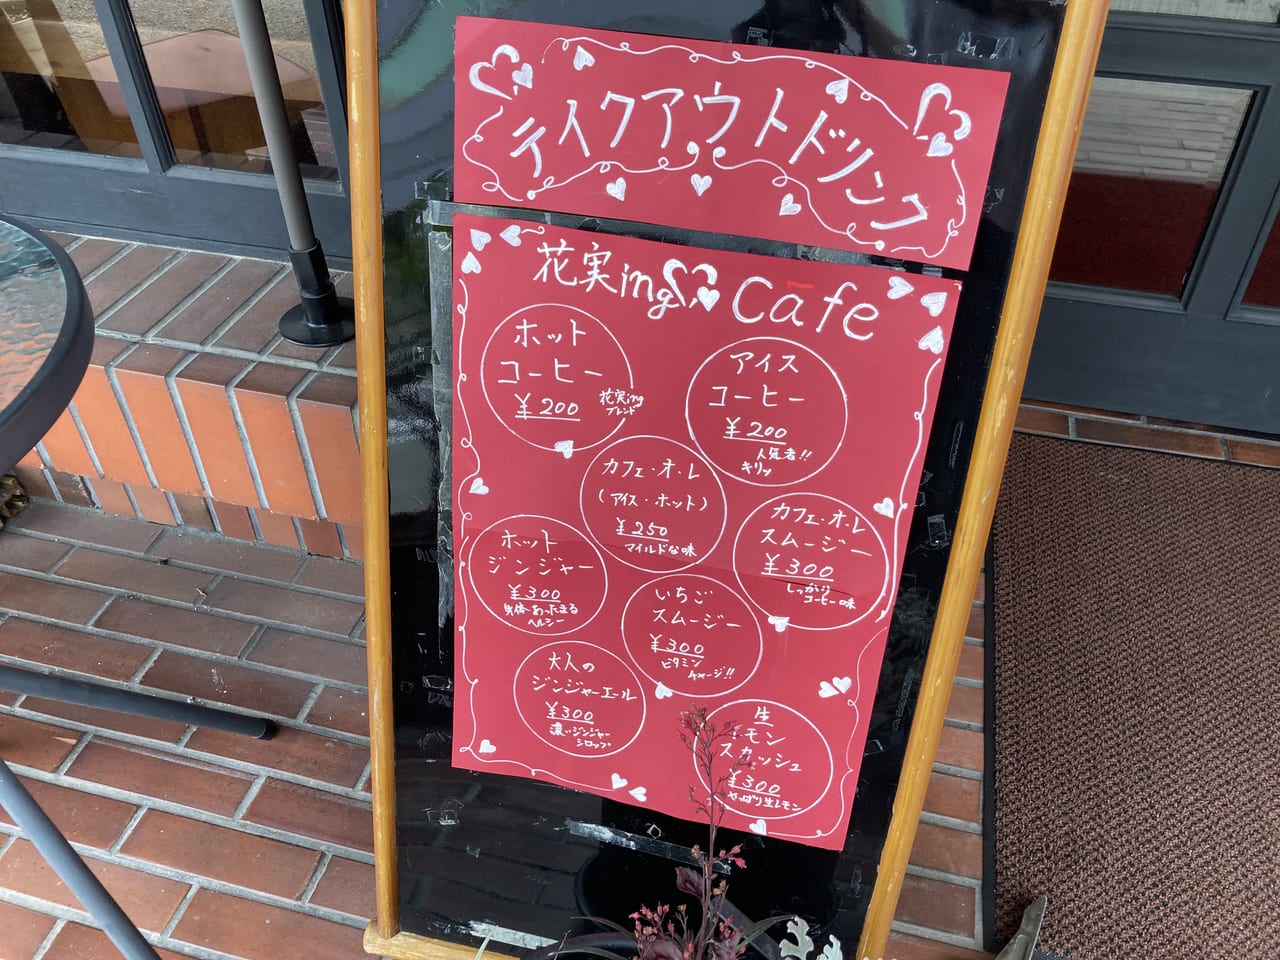 テイクアウトドリンク
花実ing Cafe
ホット
コーヒー
¥200
花実ing
ブレンド
アイス
コーヒー
¥200
人気者!!
キリッ
カフェ・オ・レ
(アイス・ホット)
¥250
マイルドな味
カフェ・オ・レ
スムージー
¥300
しっかり
コーヒー味
ホット
ジンジャー
¥300
身体あったまる
ヘルシー
いちご
スムージー
¥300
ビタミン
チャージ!!
大人の
ジンジャーエール
¥300
濃いジンジャー
シロップ
生
レモン
スカッシュ
¥300
やっぱり生レモン